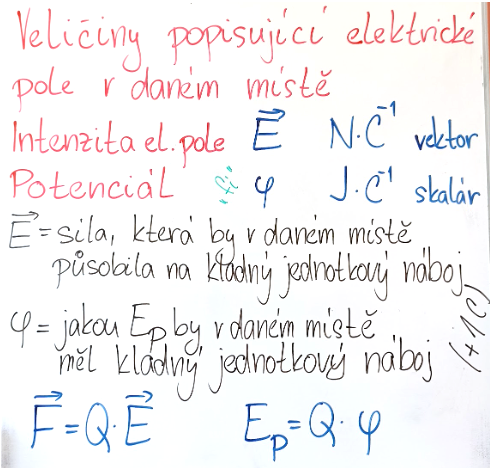 Veličiny popisující elektrické
pole v daném místě
Intenzita el. pole E⃗ N·C⁻¹ vektor
Potenciál "fí" φ J·C⁻¹ skalár
E⃗ = síla, která by v daném místě
působila na kladný jednotkový náboj
φ = jakou Eₚ by v daném místě
měl kladný jednotkový náboj
(+1C)
F⃗ = Q·E⃗ Eₚ = Q·φ